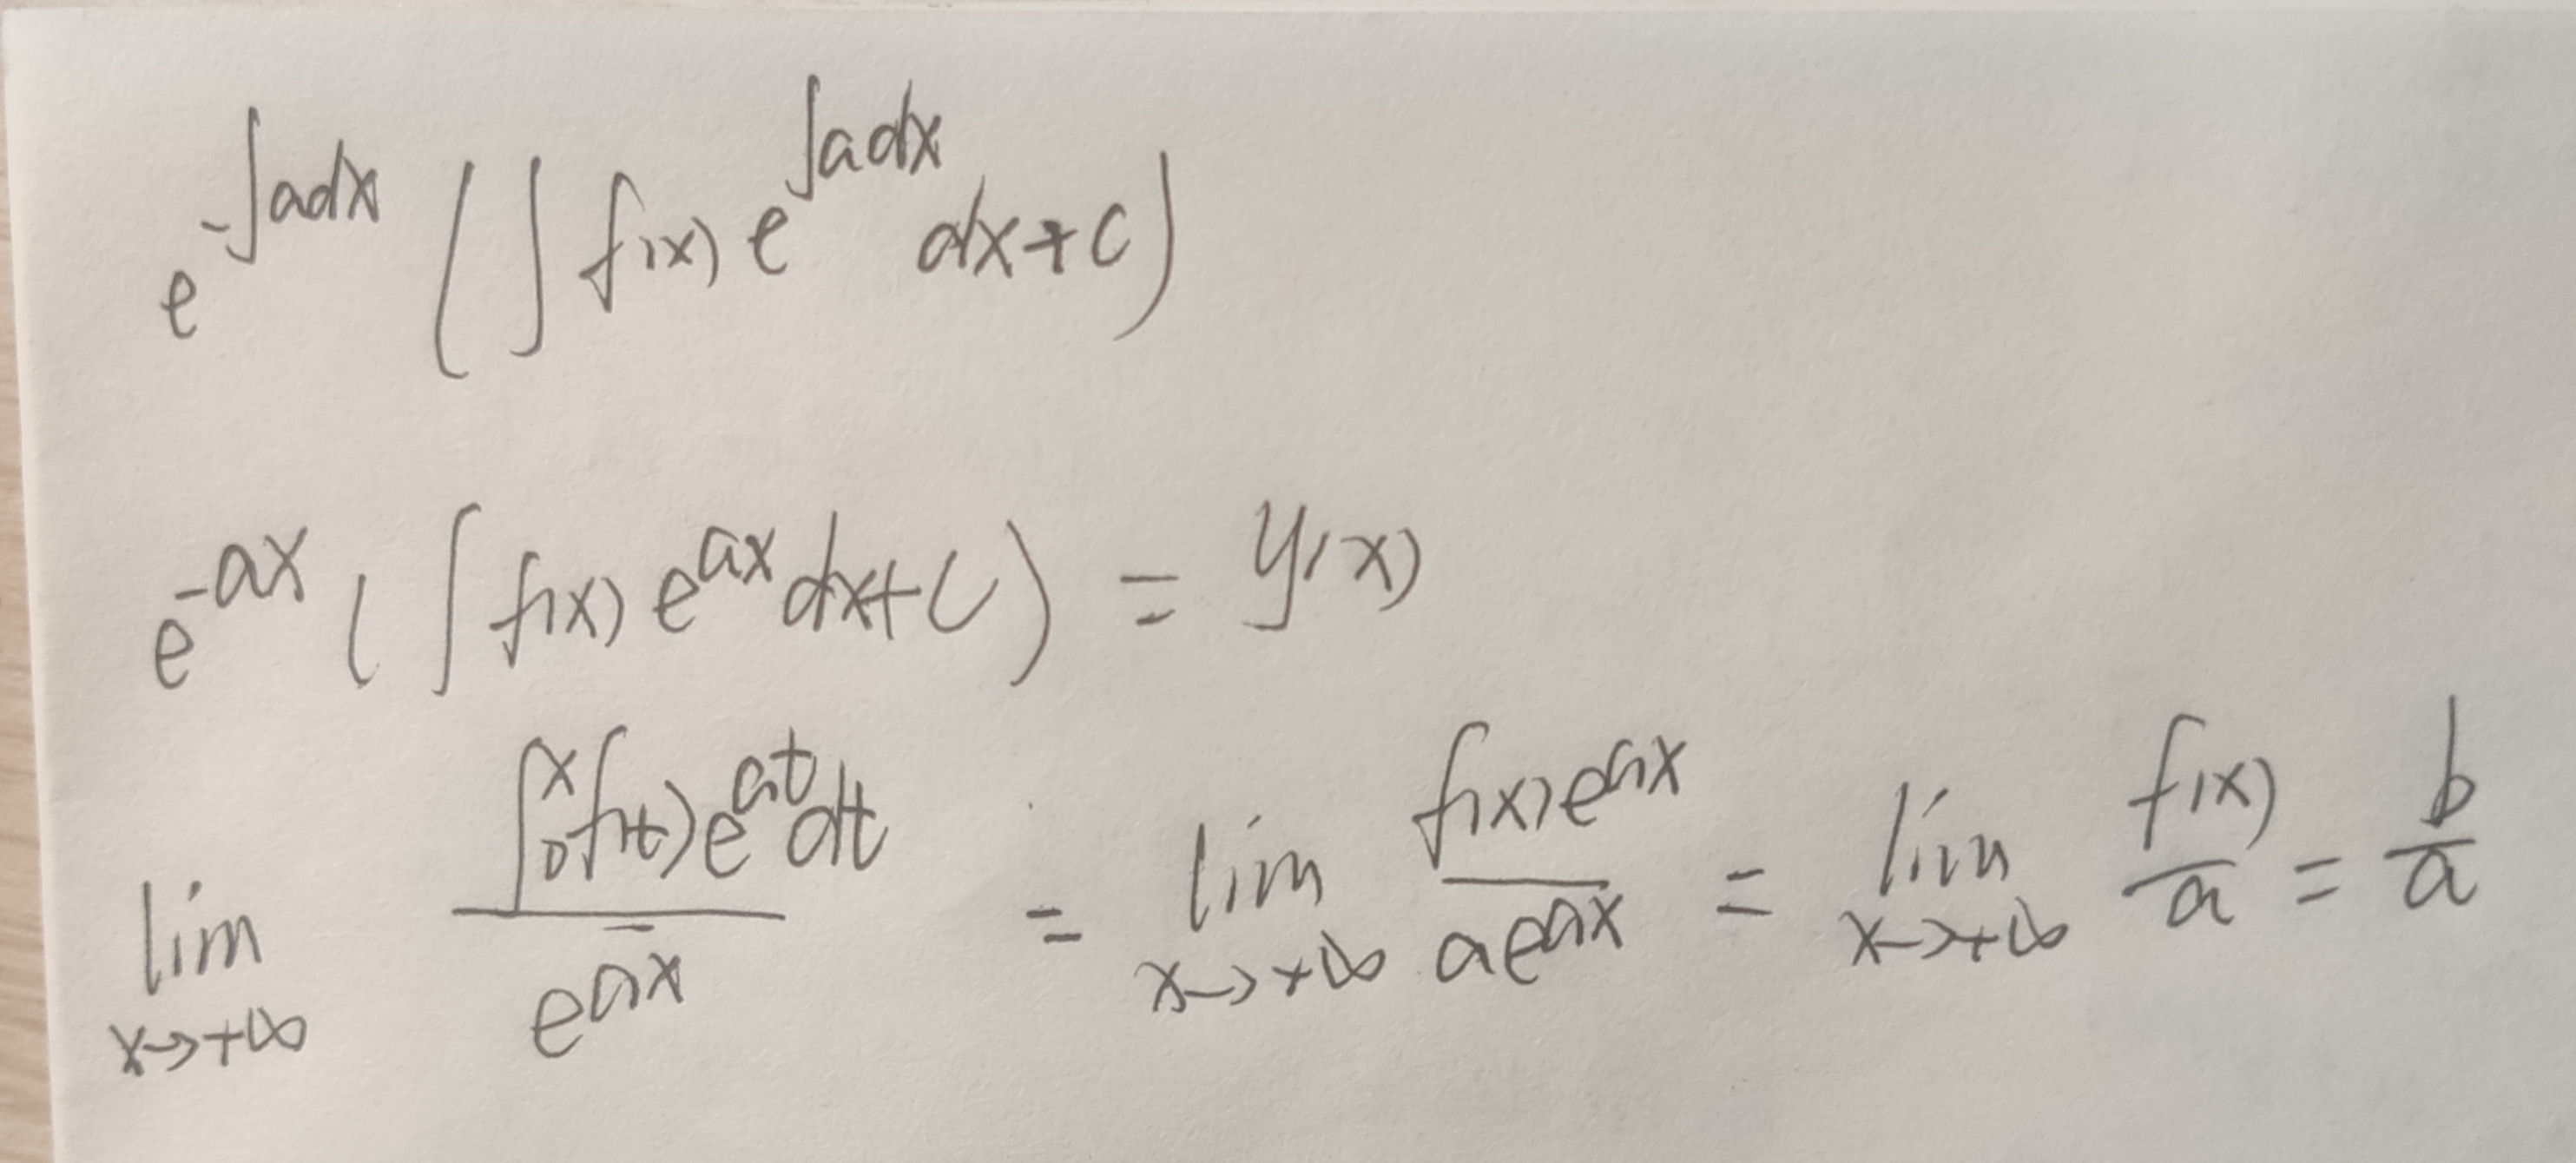 e^{-∫adx} (∫ f(x) e^{∫adx} dx+C)
e^{-ax} (∫ f(x) e^{ax} dx+C) = y(x)
lim_{x→+∞} \frac{∫_0^x f(t) e^{at} dt}{e^{ax}} = lim_{x→+∞} \frac{f(x) e^{ax}}{a e^{ax}} = lim_{x→+∞} \frac{f(x)}{a} = \frac{b}{a}